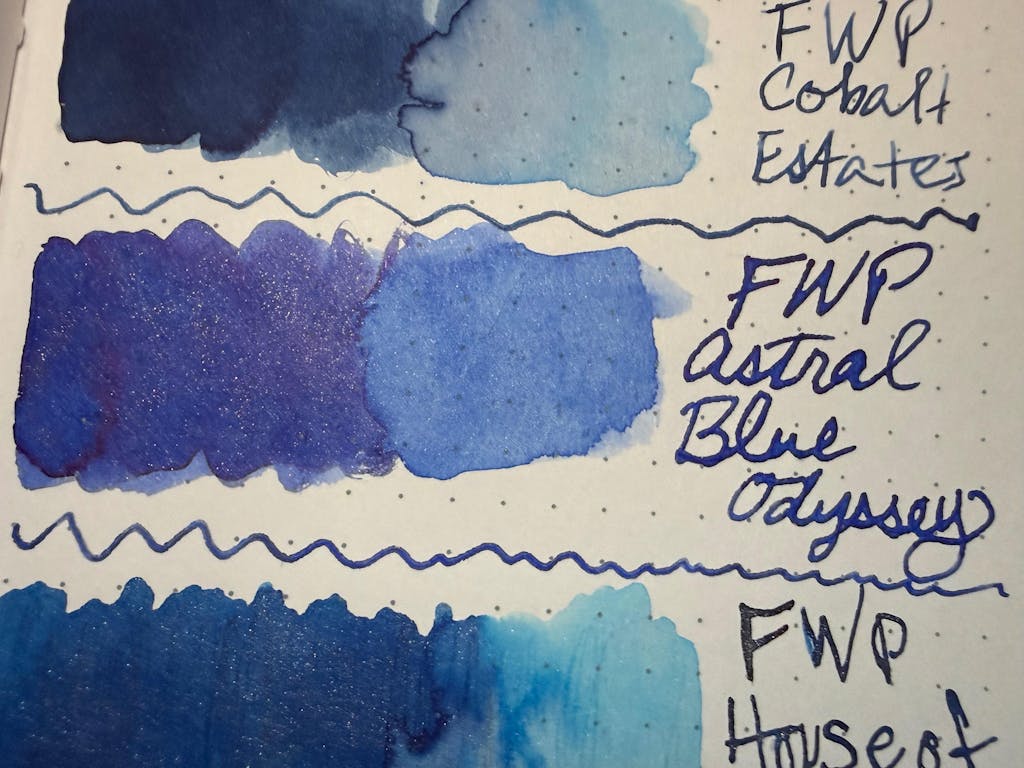 FWP
Cobalt
Estates
FWP
Astral
Blue
Odyssey
FWP
House of